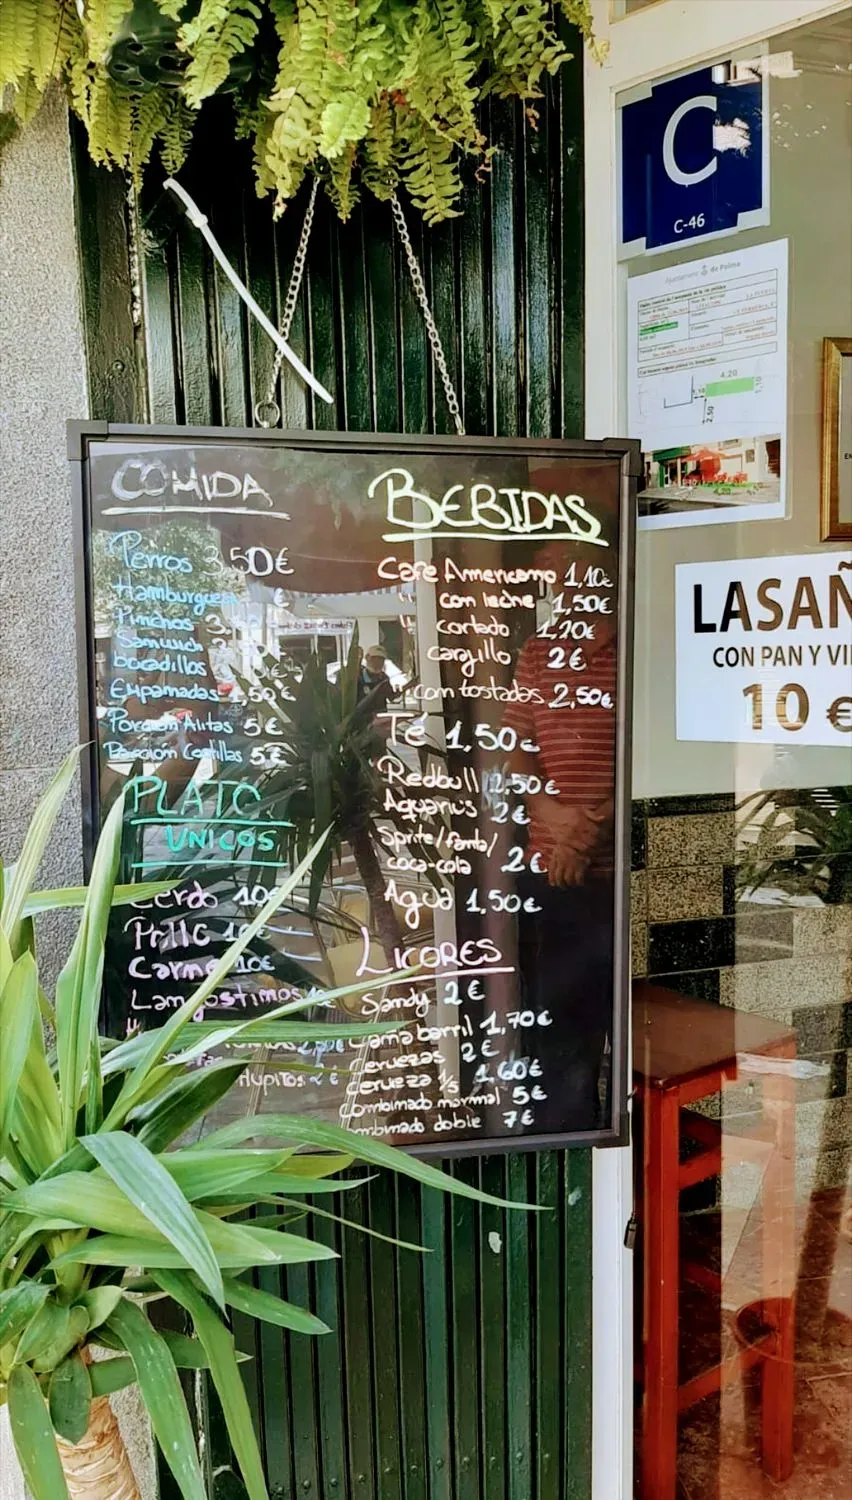 C
C-46
Ajuntament de Palma
4,20
2,50
LASAÑ
CON PAN Y VI
10 €
COMIDA
Perros 3,50€
Hamburguesa €
Sanwich
bocadillos
Empamadas 1,50€
Porción Alitas 5€
Porción Costillas 5€
PLATO
UNICOS
Cerdo 10€
Pollo 10€
Carne 10€
Langostimos
CHUPITOS 2€
BEBIDAS
Cafe Americano 1,10€
" con leche 1,50€
" cortado 1,20€
carajillo 2€
" com tostadas 2,50€
Té 1,50€
Redbull 2,50€
Aquarius 2€
Sprite/fanta/
coca-cola 2€
Agua 1,50€
LICORES
Sandy 2€
caña barril 1,70€
cervezas 2€
cerveza 1/5 1,60€
combimado mormal 5€
combimado doble 7€